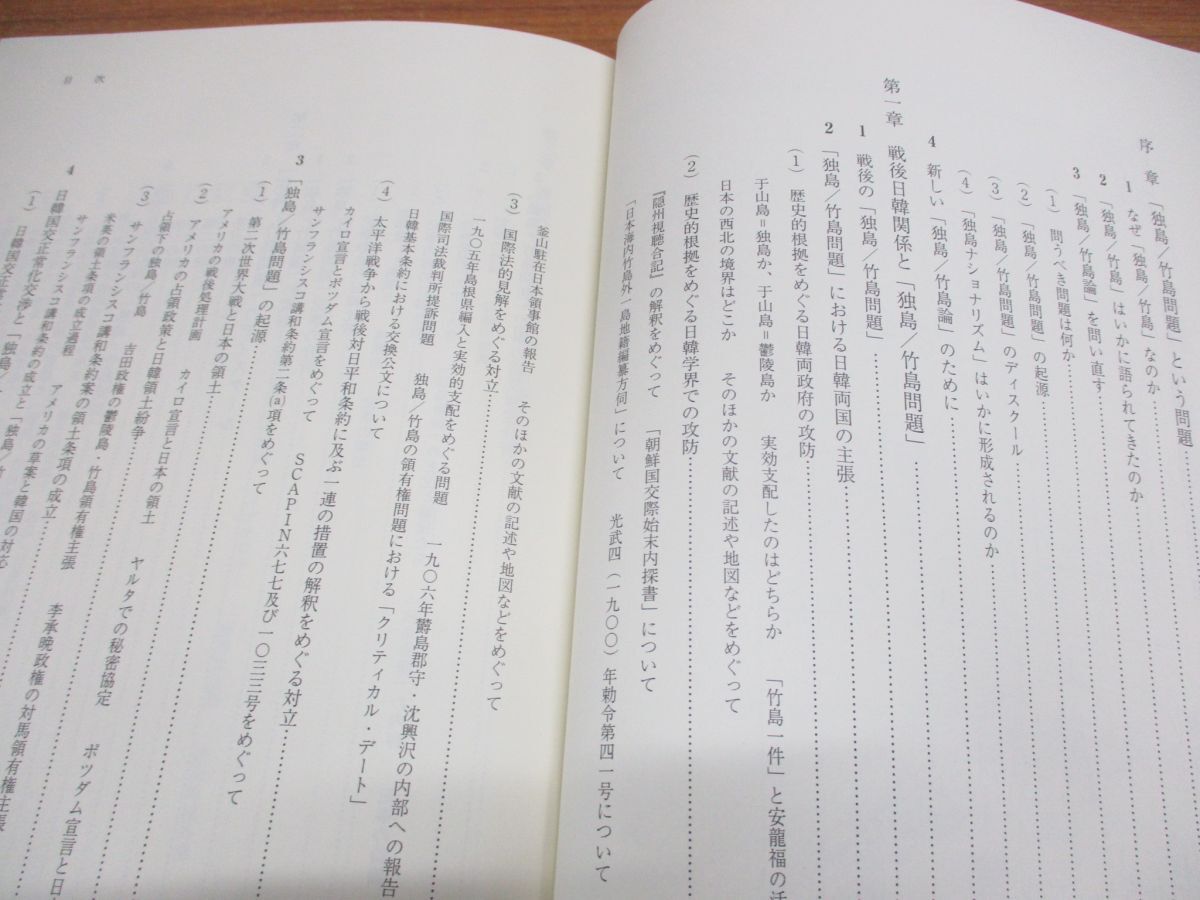 序章 「独島/竹島問題」という問題
1 なぜ「独島/竹島」なのか
2 「独島/竹島」はいかに語られてきたのか
3 「独島/竹島論」を問い直す
(1) 問うべき問題は何か
(2) 「独島/竹島問題」の起源
(3) 「独島/竹島問題」のディスクール
(4) 「独島ナショナリズム」はいかに形成されるのか
4 新しい「独島/竹島論」のために
第一章 戦後日韓関係と「独島/竹島問題」
1 戦後の「独島/竹島問題」
2 「独島/竹島問題」における日韓両国の主張
(1) 歴史的根拠をめぐる日韓両政府の攻防
于山島=独島か、于山島=鬱陵島か 実効支配したのはどちらか 「竹島一件」と安龍福の活
日本の西北の境界はどこか そのほかの文献の記述や地図などをめぐって
(2) 歴史的根拠をめぐる日韓学界での攻防
『隠州視聴合記』の解釈をめぐって 「朝鮮国交際始末内探書」について
「日本海内竹島外一島地籍編纂方伺」について 光武四(一九〇〇)年勅令第四一号について
目次
釜山駐在日本領事館の報告 そのほかの文献の記述や地図などをめぐって
(3) 国際法的見解をめぐる対立
一九〇五年島根県編入と実効的支配をめぐる問題 一九〇六年欝島郡守・沈興沢の内部への報告
国際司法裁判所提訴問題 独島/竹島の領有権問題における「クリティカル・デート」
日韓基本条約における交換公文について
(4) 太平洋戦争から戦後対日平和条約に及ぶ一連の措置の解釈をめぐる対立
カイロ宣言とポツダム宣言をめぐって SCAPIN六七七及び一〇三三号をめぐって
サンフランシスコ講和条約第二条(a)項をめぐって
3 「独島/竹島問題」の起源
(1) 第二次世界大戦と日本の領土
アメリカの戦後処理計画 カイロ宣言と日本の領土 ヤルタでの秘密協定 ポツダム宣言と日
(2) アメリカの占領政策と日韓領土紛争
占領下の独島/竹島 吉田政権の鬱陵島・竹島領有権主張 李承晩政権の対馬領有権主張
(3) サンフランシスコ講和条約案の領土条項の成立
米英の領土条項の成立過程 アメリカの草案と韓国の対応
サンフランシスコ講和条約の成立と「独島/竹
4 日韓国交正常化交渉と「独島/
(1) 日韓国交正常